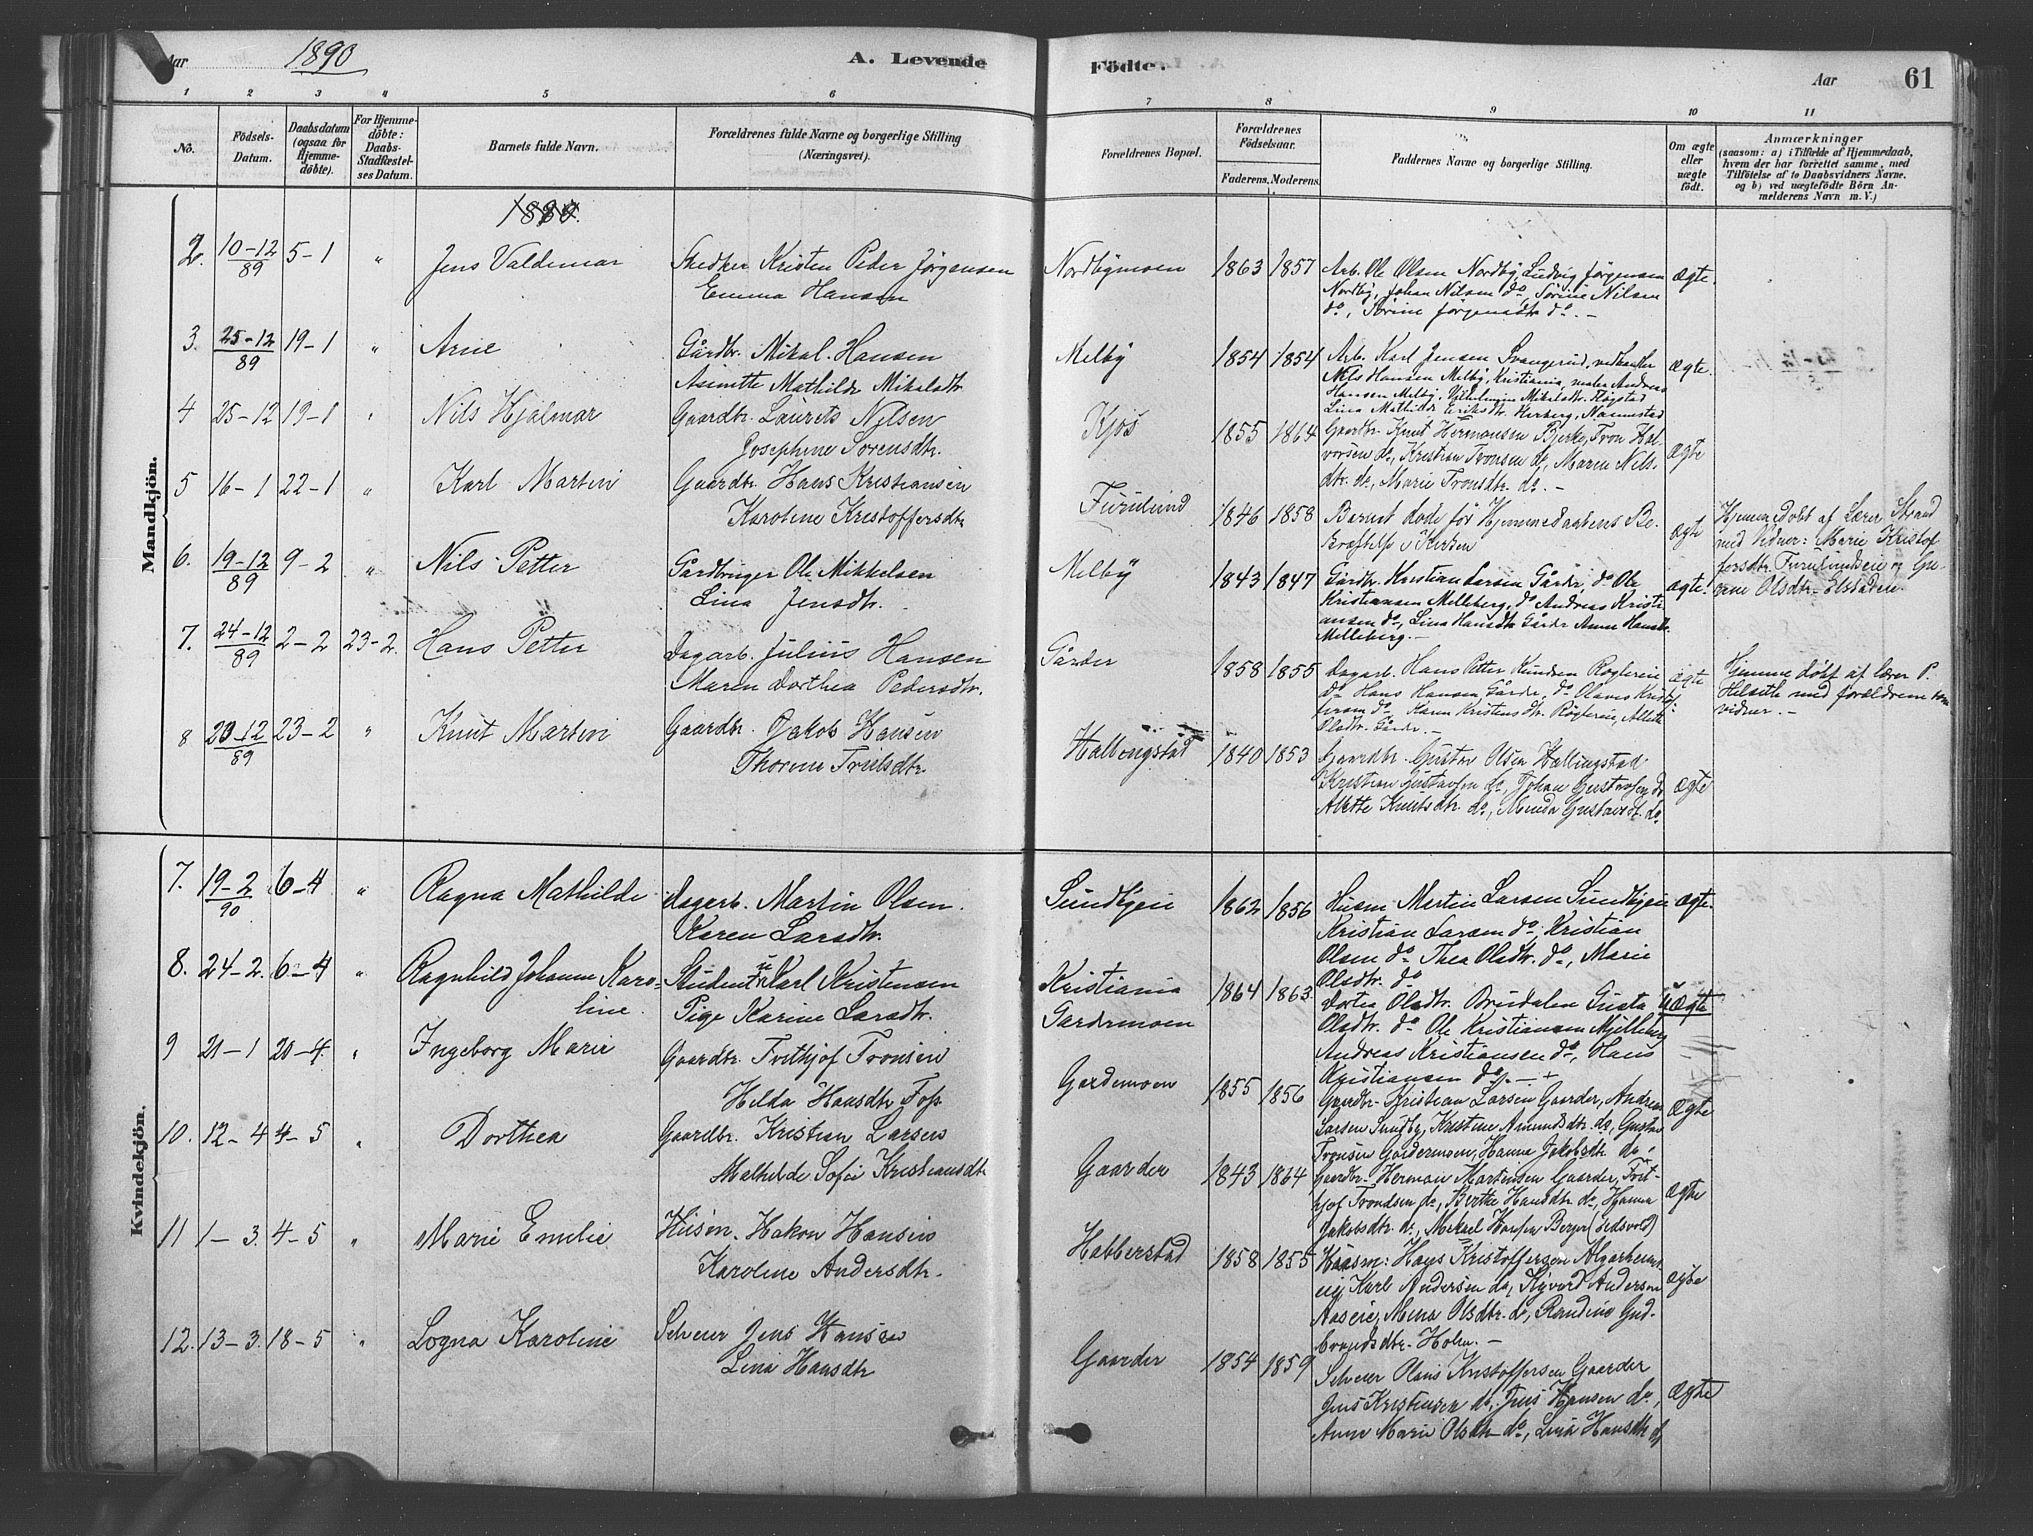 Aar 1890 A. Levende
Födte. Aar 61
1 2 3 4 5 6
7 8 9 10 11
No.
Födsels-
Datum.
Daabsdatum
(ogsaa for
Hjemme-
döbte).
For Hjemme-
döbte:
Daabs-
Stadfæstel-
ses Datum.
Barnets fulde Navn.
Forældrenes fulde Navne og borgerlige Stilling
(Næringsvei).
Forældrenes Bopæl.
Forældrenes
Födselsaar.
Faderens. Moderens.
Faddernes Navne og borgerlige Stilling.
Om ægte
eller
uægte
födt.
Anmærkninger
(saasom: a) i Tilfælde af Hjemmedaab,
hvem der har forrettet samme, med
Tilföielse af to Daabsvidners Navne,
og b) ved uægtefödte Börn An-
melderens Navn m. V.)
Mandkjön.
2. 10-12/89 5-1 " Jens Valdemar
Skedker Kristen Peder Jørgensen
Emma Hansen
Nordbymoen 1863 1857
Arb. Ole Olsen Nordby, Ludvig Jørgensen
Nordby, Johan Nilsen do, Sørine Nilsen
do, Sørine Jørgensdtr do. -
ægte.
3. 25-12/89 19-1 " Arne
Gårdbr. Mikal Hansen
Mathilde Mikalsdtr
Melby 1854 1854
Arb. Karl Jensen
Nils Hansen Melby, Kristiania, Andreas
Hansen Melby,
Lina Mathilde Eriksdtr
ægte.
4 25-12 19-1 " Nils Hjalmar
Gaardbr. Laurets Nilsen
Josephine Sorensdtr.
Kjos 1855 1864
Gaardbr. Knut Hermansen Bjerke, Tron Hal-
vorsen do, Kristian Tronsen do, Maren Nils-
dtr. do, Marie Tronsdtr. do. -
ægte
5 16-1 22-1 " Karl Martin
Gaardbr. Hans Kristiansen
Karoline Kristoffersdtr
Furulund 1846 1858
Barnet døde før Hjemmedaabens Be-
kræftelse i Kirken
ægte
Hjemmedøbt af Lærer Strand
med Vidner: Marie Kristof-
fersdtr. Furulundeie og Gu-
Olsdtr.
6. 19-12/89 9-2 " Nils Petter
Gårdbruger Ole Mikkelsen
Lina Jensdtr.
Melby 1843 1847
Gårdbr. Kristian Larsen Gårder, do Ole
Kristiansen Milleberg, do Andreas Kristi-
ansen do, Lina Hansdtr Gårder Anne Hansdtr
Milleberg. -
ægte.
7. 24-12/89 2-2 23-2. Hans Petter
Dagarb. Julius Hansen
Maren Dorthea Pedersdtr.
Gårder 1858 1855
Dagarb. Hans Petter Knudsen
do Hans Hansen Gårder, do Olaves Kristof-
fersen do. Karen Kristensdtr
Olsdtr. Gårder. -
ægte
Hjemme døbt af lærer P.
med forældrene som
vidner. -
8 20-12/89 23-2 " Knut Martin
Gaardbr. Jakob Hansen
Thorine Truelsdtr.
Hallingstad 1840 1853
Gaardbr. Gustav Olsen Hallingstad
Kristian Gustavsen do, Johan Gustavsen do
Alette Knutsdtr. do, Minda Gustavsdt. do.
ægte
Kvindekjön.
7. 19-2/90 6-4 " Ragna Mathilde
Dagarb. Martin Olsen.
Karen Larsdtr.
Sundbyeie 1862 1856
Husm. Martin Larsen Sundbyeie
Kristian Larsen do, Kristian
Olsen do Thea Olsdtr. do, Marie
Olsdtr. do
ægte.
8. 24-2. 6-4 " Ragnhild Johanne Karo-
line.
Student Karl Kristensen
Pige Karine Larsdtr.
Kristiania
Gardermoen
1864 1863.
Dortea Olsdtr. Brudalen Gusta
Olsdtr. do Ole Kristiansen Milleberg
Andreas Kristiansen do, Hans
Kristiansen do. - +
uægte
9 21-1 20-4. " Ingeborg Marie
Gaardbr. Frithjof Tronsen
Hilda Hansdtr.
Gardemoen 1855 1856
Gaardbr. Kristian Larsen Gaarder, Andreas
Larsen Sundby, Kristine Amundsdtr. do, Gustav
Tronsen Gardermoen, Hanna Jakobsdtr do.
ægte
10. 12-4 4-5 " Dorthea
Gaardbr. Kristian Larsen
Mathilde Sofie Kristiansdtr
Gaarder 1843 1864
Gaardbr. Herman Martinsen Gaarder, Frit-
hjof Trondsen do, Berthe Hansdtr do, Hanna
Jakobsdtr. do, Mikael Hansen Berger (Eidsvold)
ægte
11 1-3. 4-5 " Marie Emilie
Husm. Hakon Hansen
Karoline Andersdtr.
Habberstad 1858 1855
Husm: Hans Kristoffersen Algarheims-
eie, Karl Andersen do, Andersen
Aaseie, Mina Olsdtr. do, Randine Gud-
brandsdtr. Holm. -
ægte
12. 13-3. 18-5 " Logna Karoline
Selveier Jens Hansen
Lina Hansdtr
Gaarder 1854 1859
Selveier Olavs Kristoffersen Gaarder
Jens Kristensen do, Jens Hansen do,
Anne Marie Olsdtr do, Lina Hansdtr do
ægte